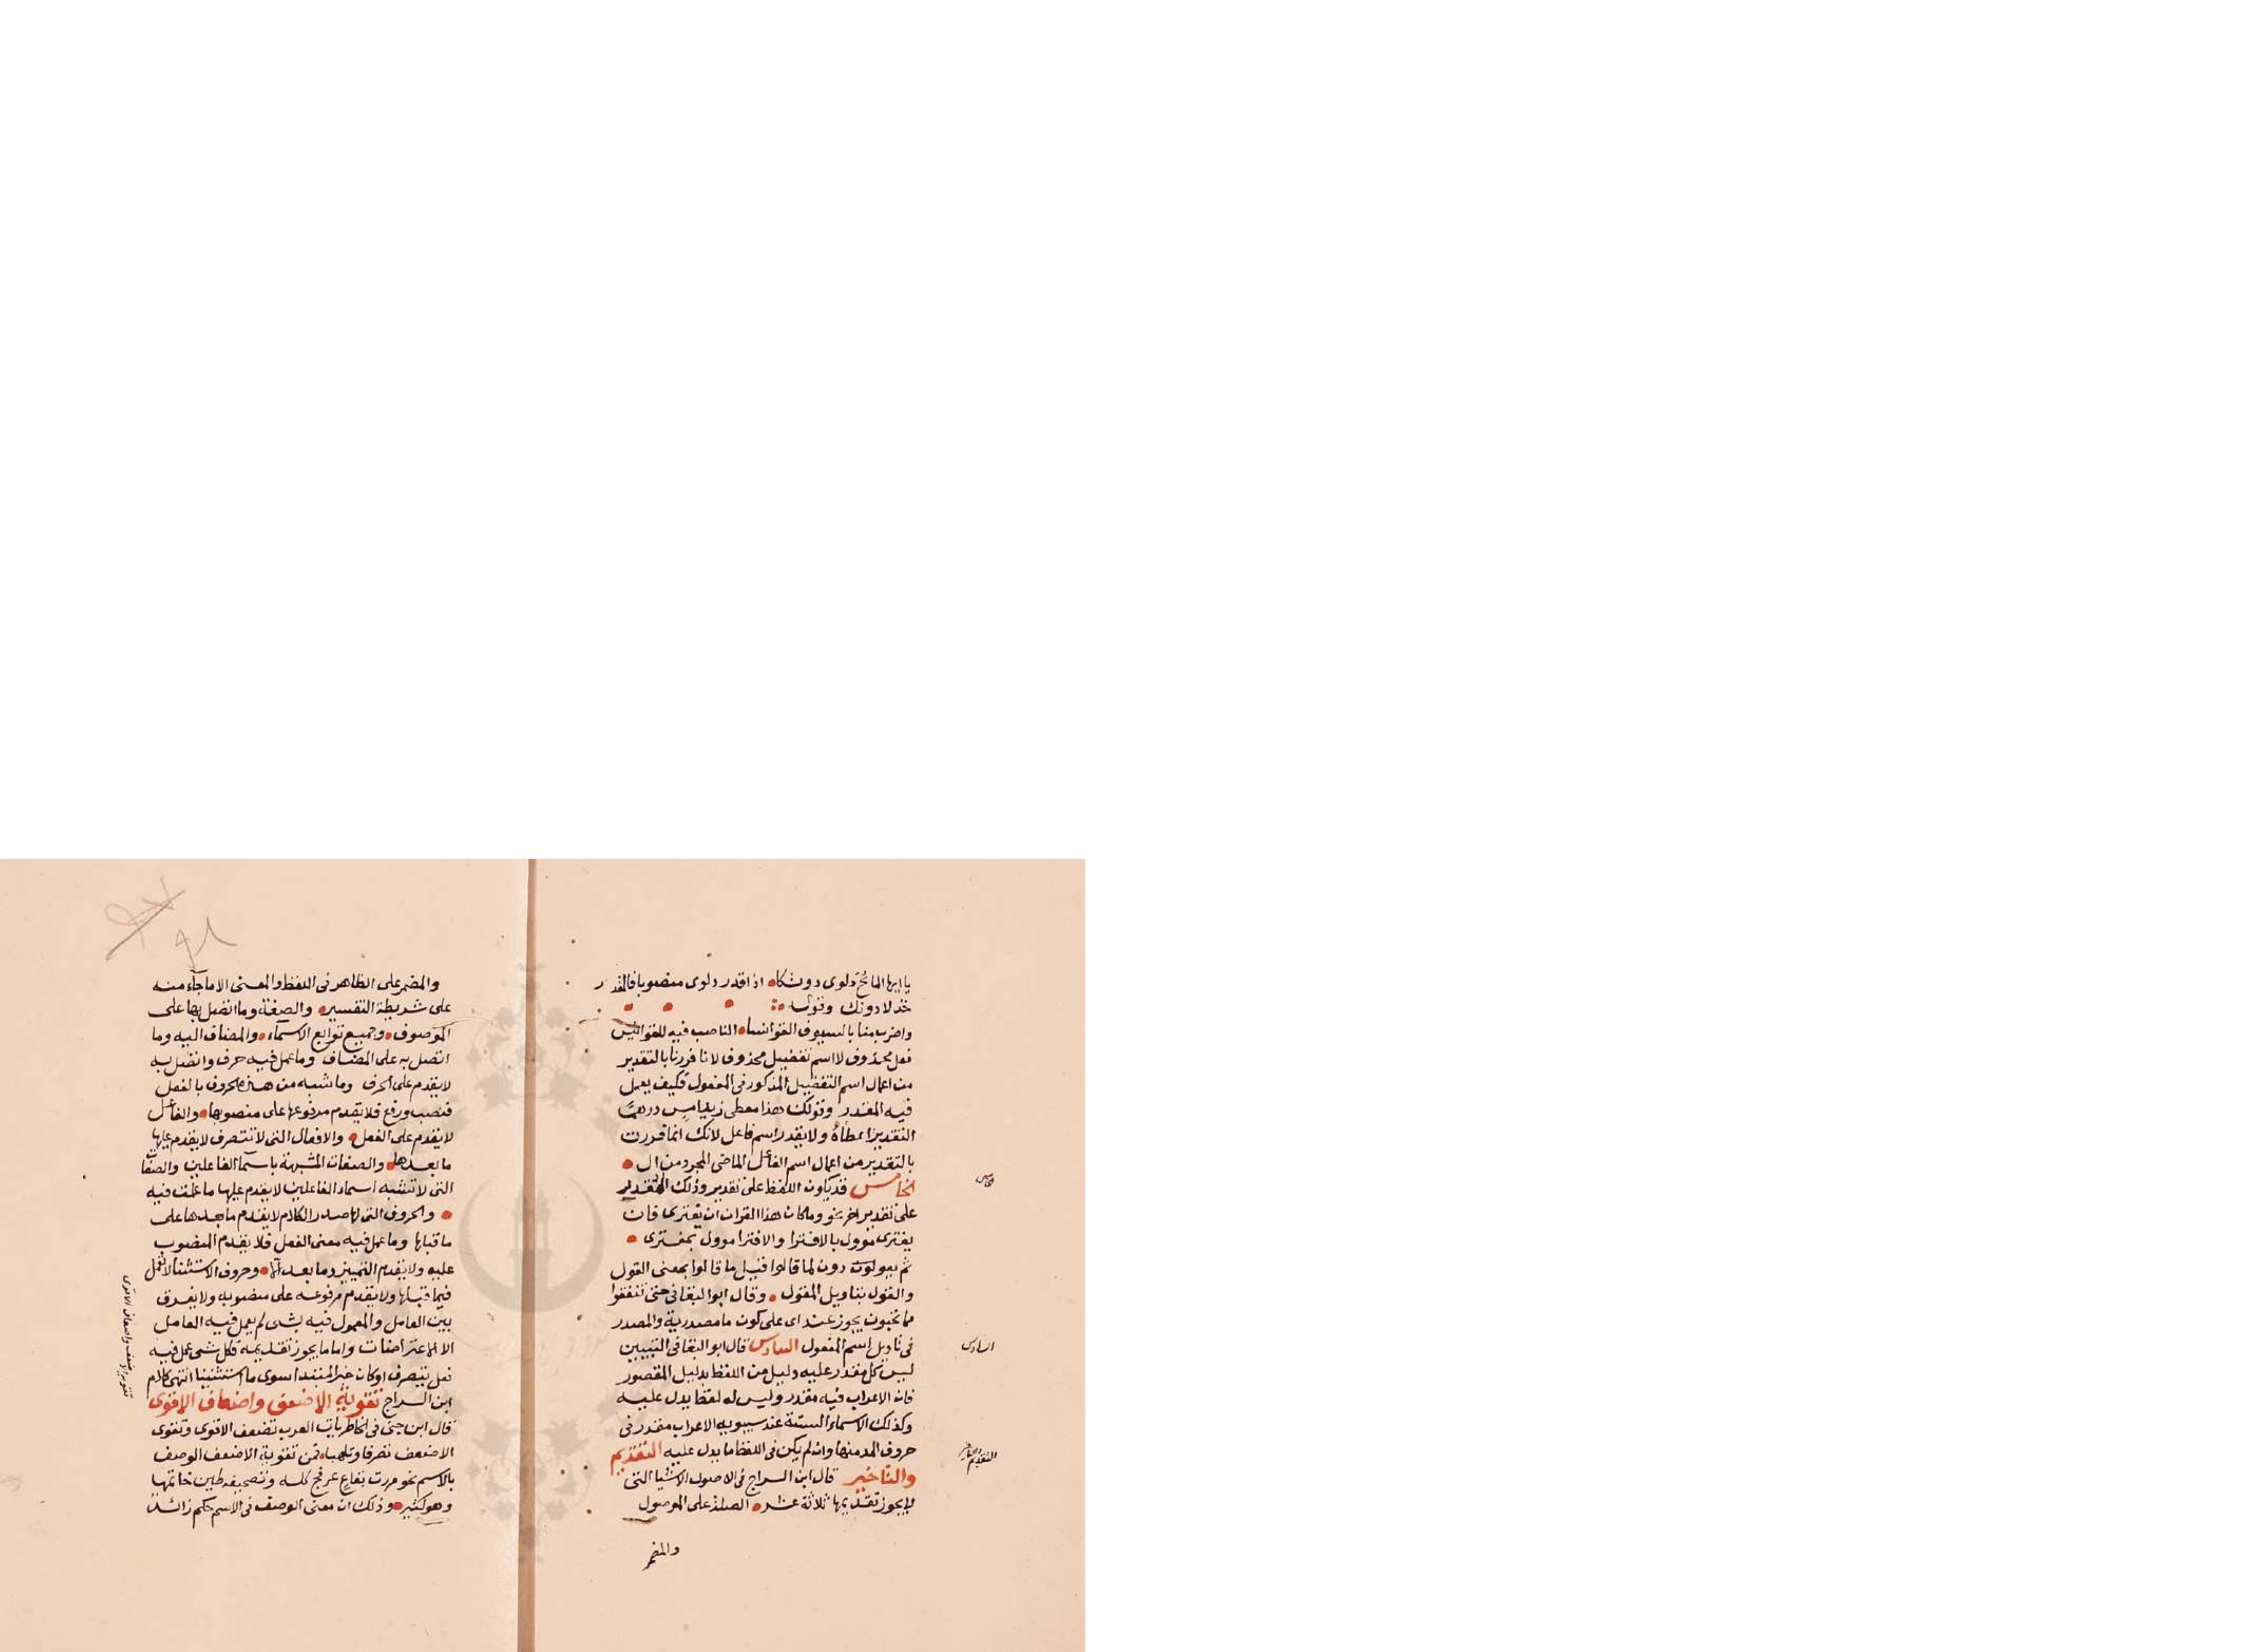 يا ايها المائح دلوى دونكا اذا قدر دلوى منصوبا فالمقدر
خذ لا دونك وقوله
واضرب منا بالسيوف القوانسا الناصب فيه للقوانس
فعل محذوف لا اسم تفضيل محذوف لانا فررنا بالتقدير
من اعمال اسم التفضيل المذكور فى المفعول فكيف يعمل
فيه المقدر وقولك هذا معطى زيد امس درهما
التقدير اعطاه ولا يقدر اسم فاعل لانك انما فررت
بالتقدير من اعمال اسم الفاعل الماضى المجرد من ال
الخامس قد يكون اللفظ على تقدير وذلك المقدير
على تقدير اخر نحو وما كان هذا القران ان يفترى فان
يفترى موول بالافترا والافترا موول بمفترى
ثم يعولون دون لما قالوا قيل ما قالوا بمعنى القول
والقول بتاويل المقول وقال ابو البقا فى حتى تنفقوا
مما تحبون يجوز عند ابى على كون ما مصدرية والمصدر
فى تاويل اسم المفعول السادس قال ابو البقا فى التبيين
ليس كل مقدر عليه دليل من اللفظ بدليل المقصور
فان الاعراب فيه مقدر وليس له لفظ يدل عليه
وكذلك الاسماء الستة عند سيبويه الاعراب مقدر فى
حروف المد منها وان لم يكن فى اللفظ ما يدل عليه التقديم
والتاخير قال ابن السراج فى الاصول الاشيا التى
لا يجوز تقديمها ثلاثة عشر الصلة على الموصول
والمضمر
الخامس
السادس
التقديم والتاخير
والمضمر على الظاهر فى اللفظ والمعنى الا ما جاء منه
على شريطة التفسير والصفة وما اتصل بها على
الموصوف وجميع توابع الاسماء والمضاف اليه وما
اتصل به على المضاف وما عمل فيه حرف واتصل به
لا يقدم على الحرف وما شبه من هذه الحروف بالفعل
فنصب ورفع فلا يقدم مرفوعها على منصوبها والفاعل
لا يقدم على الفعل والافعال التى لا تتصرف لا يقدم عليها
ما بعدها والصفات المشبهة باسما الفاعلين والصفات
التى لا تشبه اسماء الفاعلين لا يقدم عليها ما عملت فيه
والحروف التى لها صدر الكلام لا يقدم ما بعدها على
ما قبلها وما عمل فيه معنى الفعل فلا يقدم المنصوب
عليه ولا يقدم التمييز وما بعد الا وحروف الاستثنا لا تعمل
فيما قبلها ولا يقدم مرفوعه على منصوبه ولا يفرق
بين العامل والمعمول فيه بشى لم يعمل فيه العامل
الا الاعتراضات واما ما يجوز تقديمه فكل شى عمل فيه
فعل يتصرف او كان خبر المبتدا سوى ما استثنينا انتهى كلام
ابن السراج تقوية الاضعف واضعاف الاقوى
قال ابن جنى فى الخاطريات العرب تضعف الاقوى وتقوى
الاضعف تصرفا وتلعبا فمن تقوية الاضعف الوصف
بالاسم نحو مررت بقاع عرفج كله وبصحيفة طين خاتمها
وهو كثير وذلك ان معنى الوصف فى الاسم حكم زائد
تقوية الاضعف واضعاف الاقوى